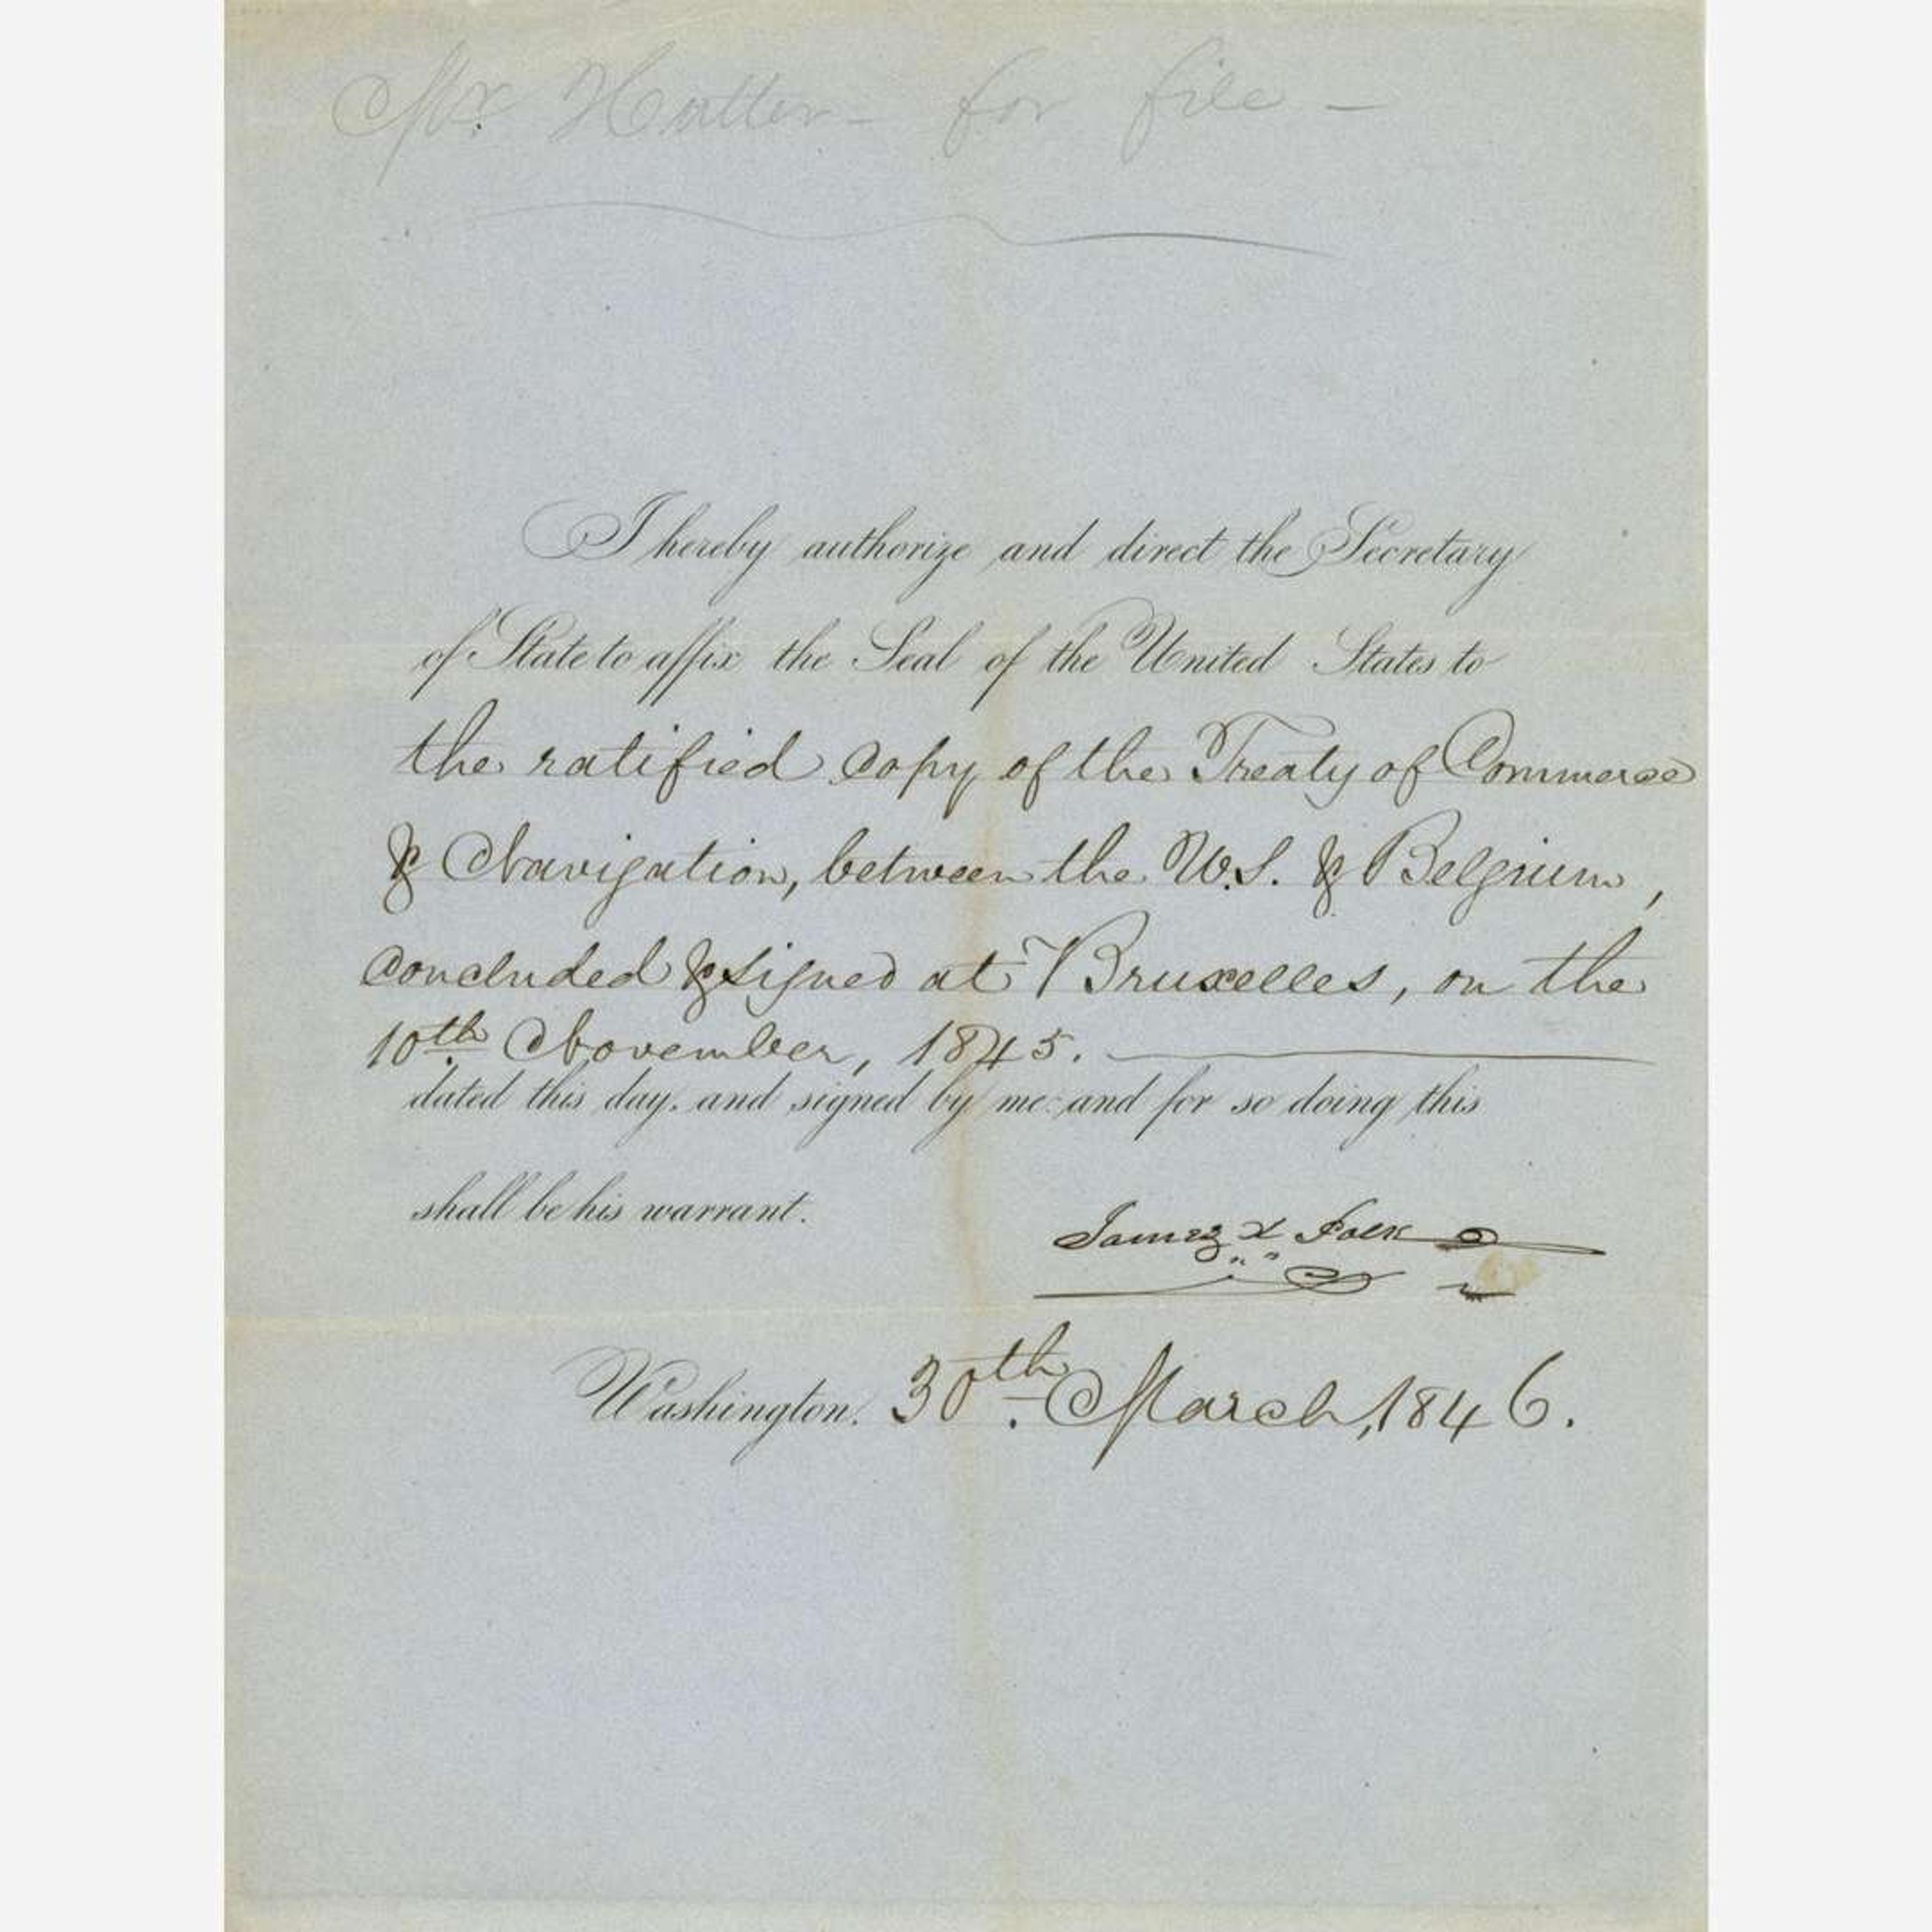 Mr. Hatter - for file -
I hereby authorize and direct the Secretary
of State to affix the Seal of the United States to
the ratified copy of the Treaty of Commerce
& Navigation, between the U.S. & Belgium,
concluded & signed at Bruxelles, on the
10th November, 1845.
dated this day, and signed by me: and for so doing this
shall be his warrant.
James K Polk
Washington. 30th March, 1846.